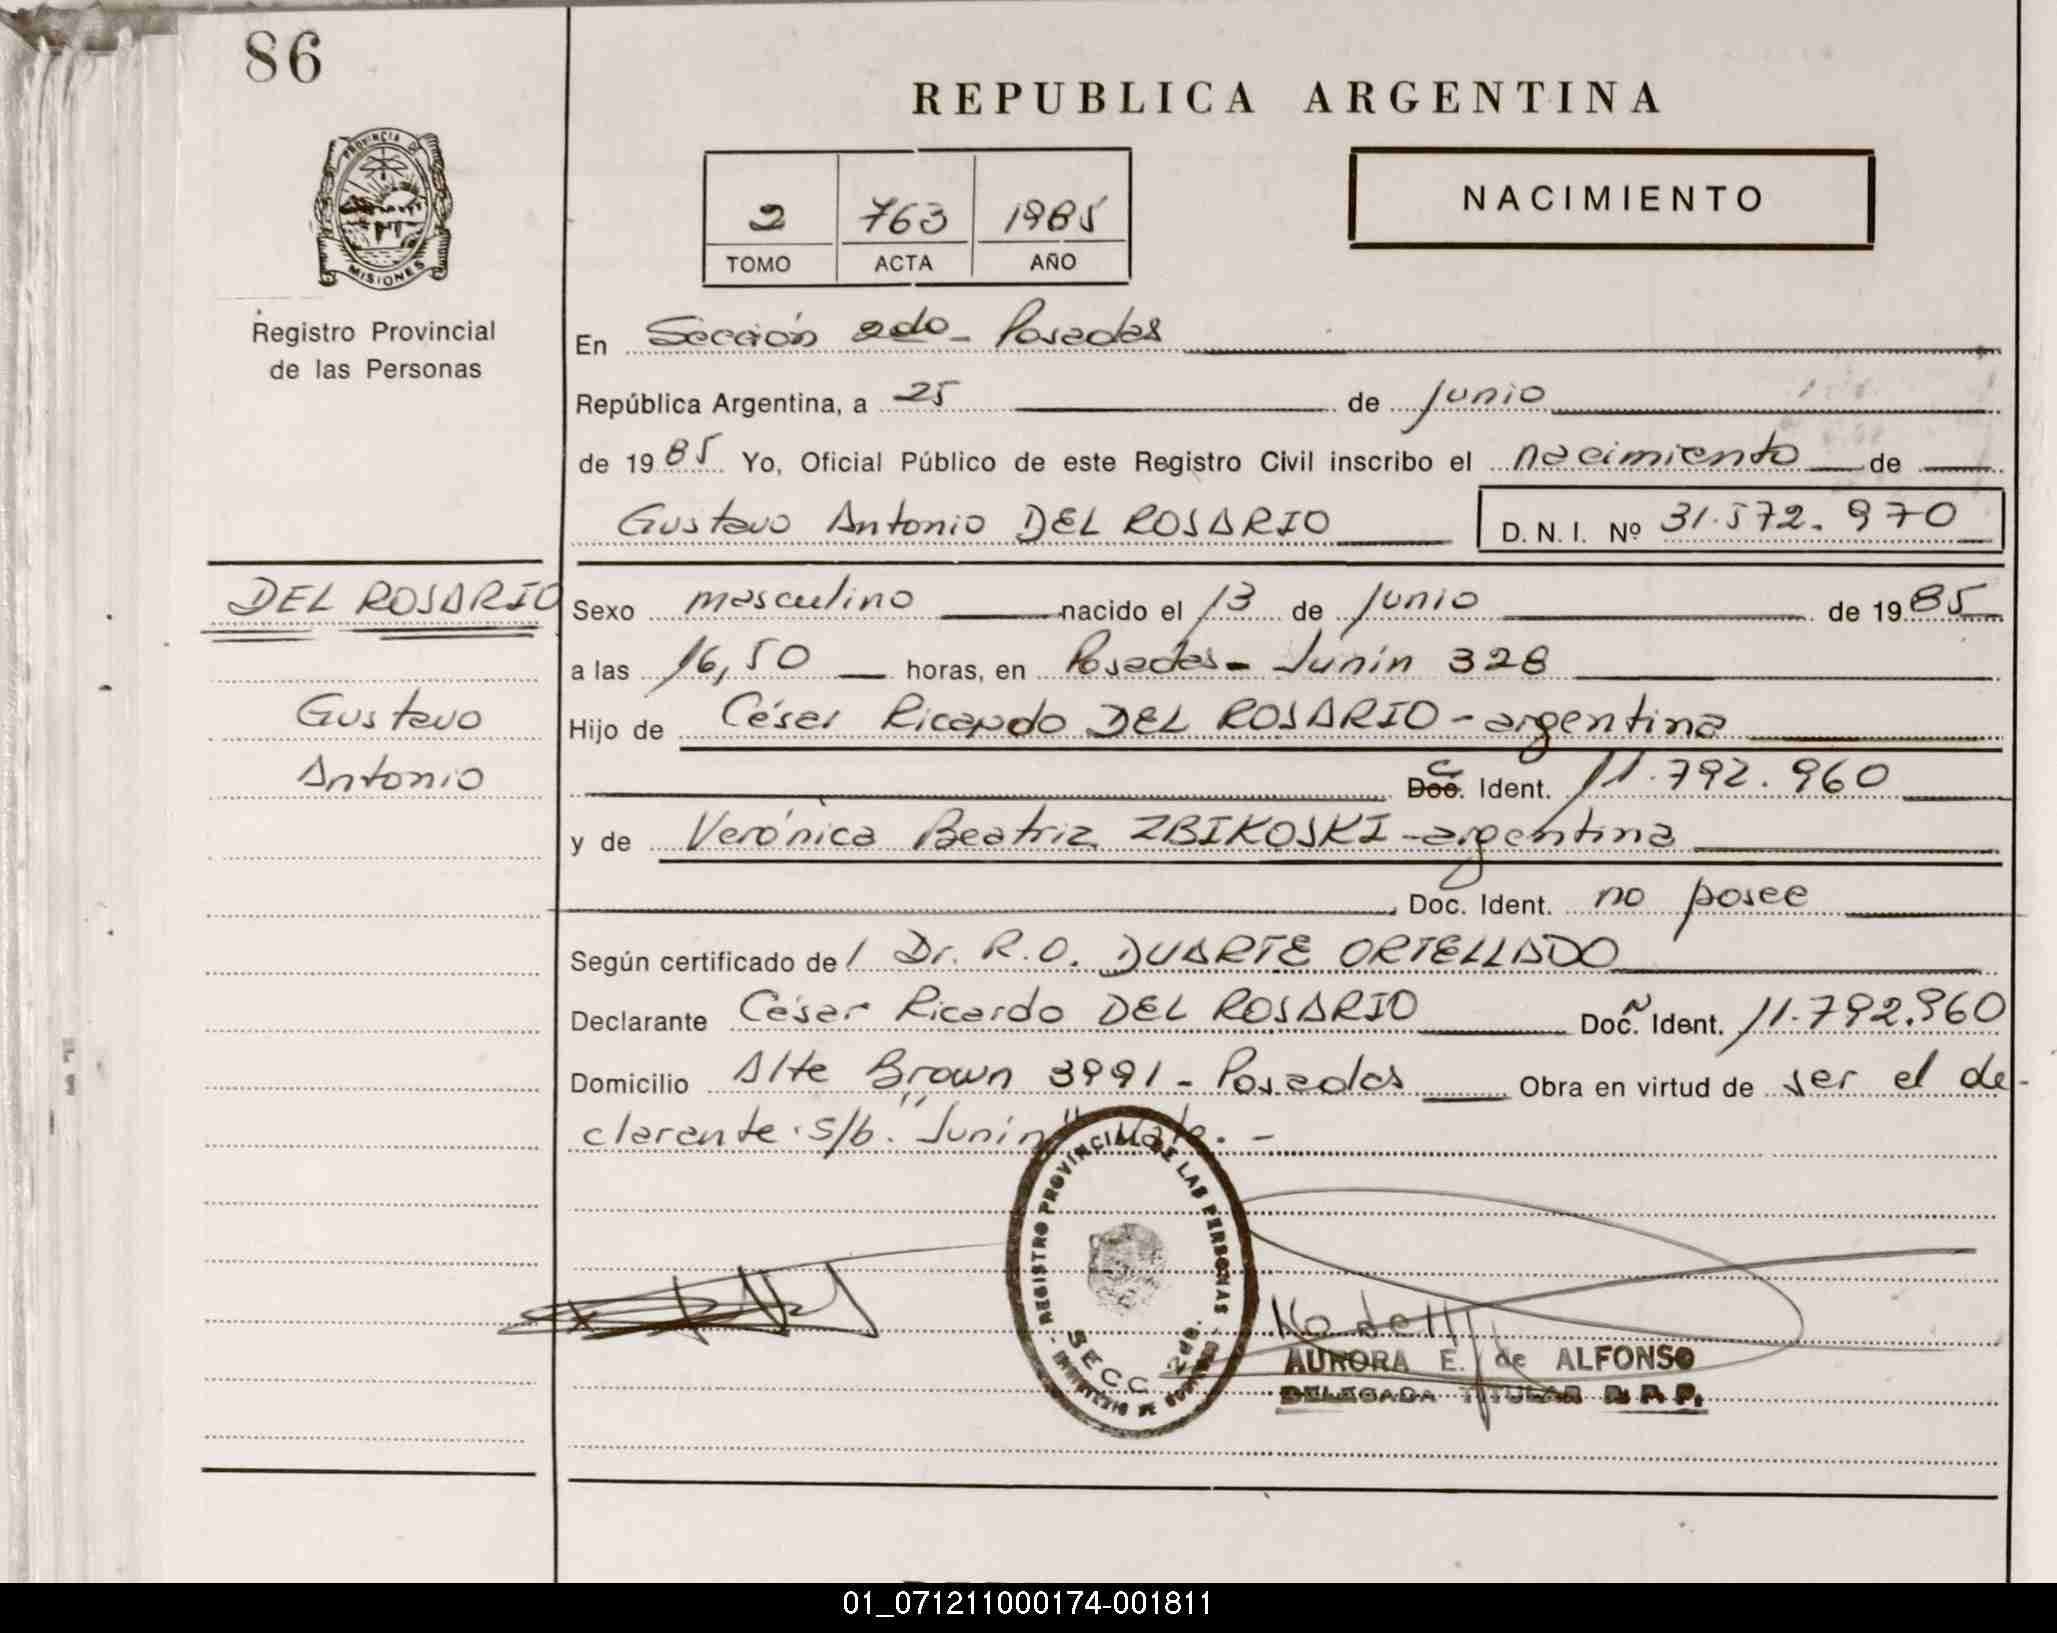 86
REPUBLICA ARGENTINA
PROVINCIA DE
MISIONES
Registro Provincial
de las Personas
2 763 1985
TOMO ACTA AÑO
NACIMIENTO
En Sección 2do - Posadas
República Argentina, a 25 de Junio
de 1985 Yo, Oficial Público de este Registro Civil inscribo el nacimiento de
Gustavo Antonio DEL ROSARIO D. N. I. Nº 31.572.970
DEL ROSARIO
Gustavo
Antonio
Sexo masculino nacido el 13 de Junio de 1985
a las 16,50 horas, en Posadas - Junín 328
Hijo de César Ricardo DEL ROSARIO - argentina
Doc. Ident. 11.792.960
y de Verónica Beatriz ZBIKOSKI - argentina
Doc. Ident. no posee
Según certificado de / Dr. R.O. DUARTE ORTELLADO
Declarante César Ricardo DEL ROSARIO Doc. Ident. 11.792.960
Domicilio Alte Brown 3991 - Posadas Obra en virtud de ser el de-
clarante. s/b. "Junín" -
REGISTRO PROVINCIAL DE LAS PERSONAS
SECC 2da.
MINISTERIO DE GOBIERNO
AURORA E. de ALFONSO
DELEGADA TITULAR R. P. P.
01_071211000174-001811